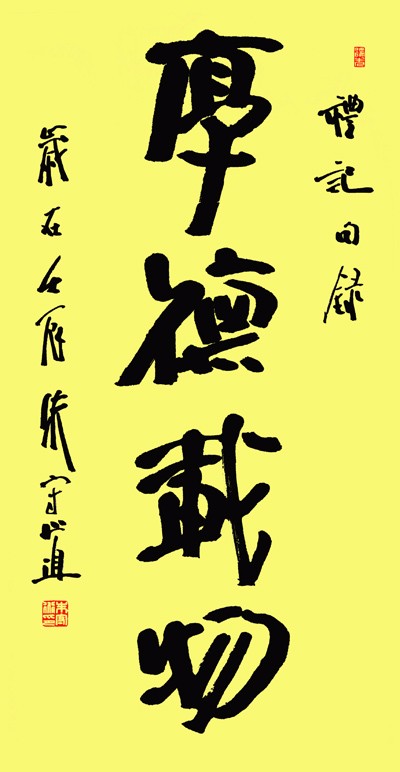 禮記句錄
厚德載物
歲在壬寅朱守道